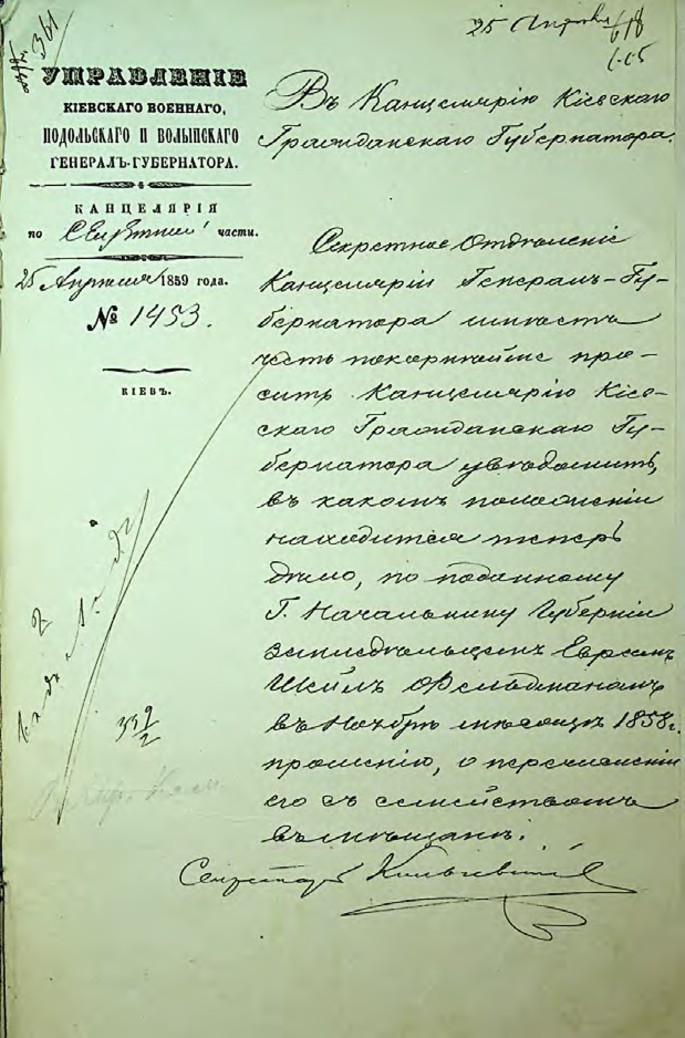 361
25 Апреля 618
УПРАВЛЕНІЕ
КІЕВСКАГО ВОЕННАГО,
ПОДОЛЬСКАГО И ВОЛЫНСКАГО
ГЕНЕРАЛЪ-ГУБЕРНАТОРА.
КАНЦЕЛЯРІЯ
по Секретной части.
25 Апреля 1859 года.
№ 1453.
КІЕВЪ.
Въ Канцелярію Кіевскаго
Гражданскаго Губернатора.
Секретное Отдѣленіе
Канцеляріи Генералъ-Гу-
бернатора имѣетъ
честь покорнѣйше про-
сить Канцелярію Кіев-
скаго Гражданскаго Гу-
бернатора увѣдомить,
въ какомъ положеніи
находится теперь
дѣло, по поданному
Г. Начальнику Губерніи
земледѣльцемъ Евреемъ
Фельдманомъ
въ Ноябрѣ мѣсяцѣ 1858 г.
прошенію, о перечисленіи
его съ семействомъ
въ мѣщане.
Секретарь